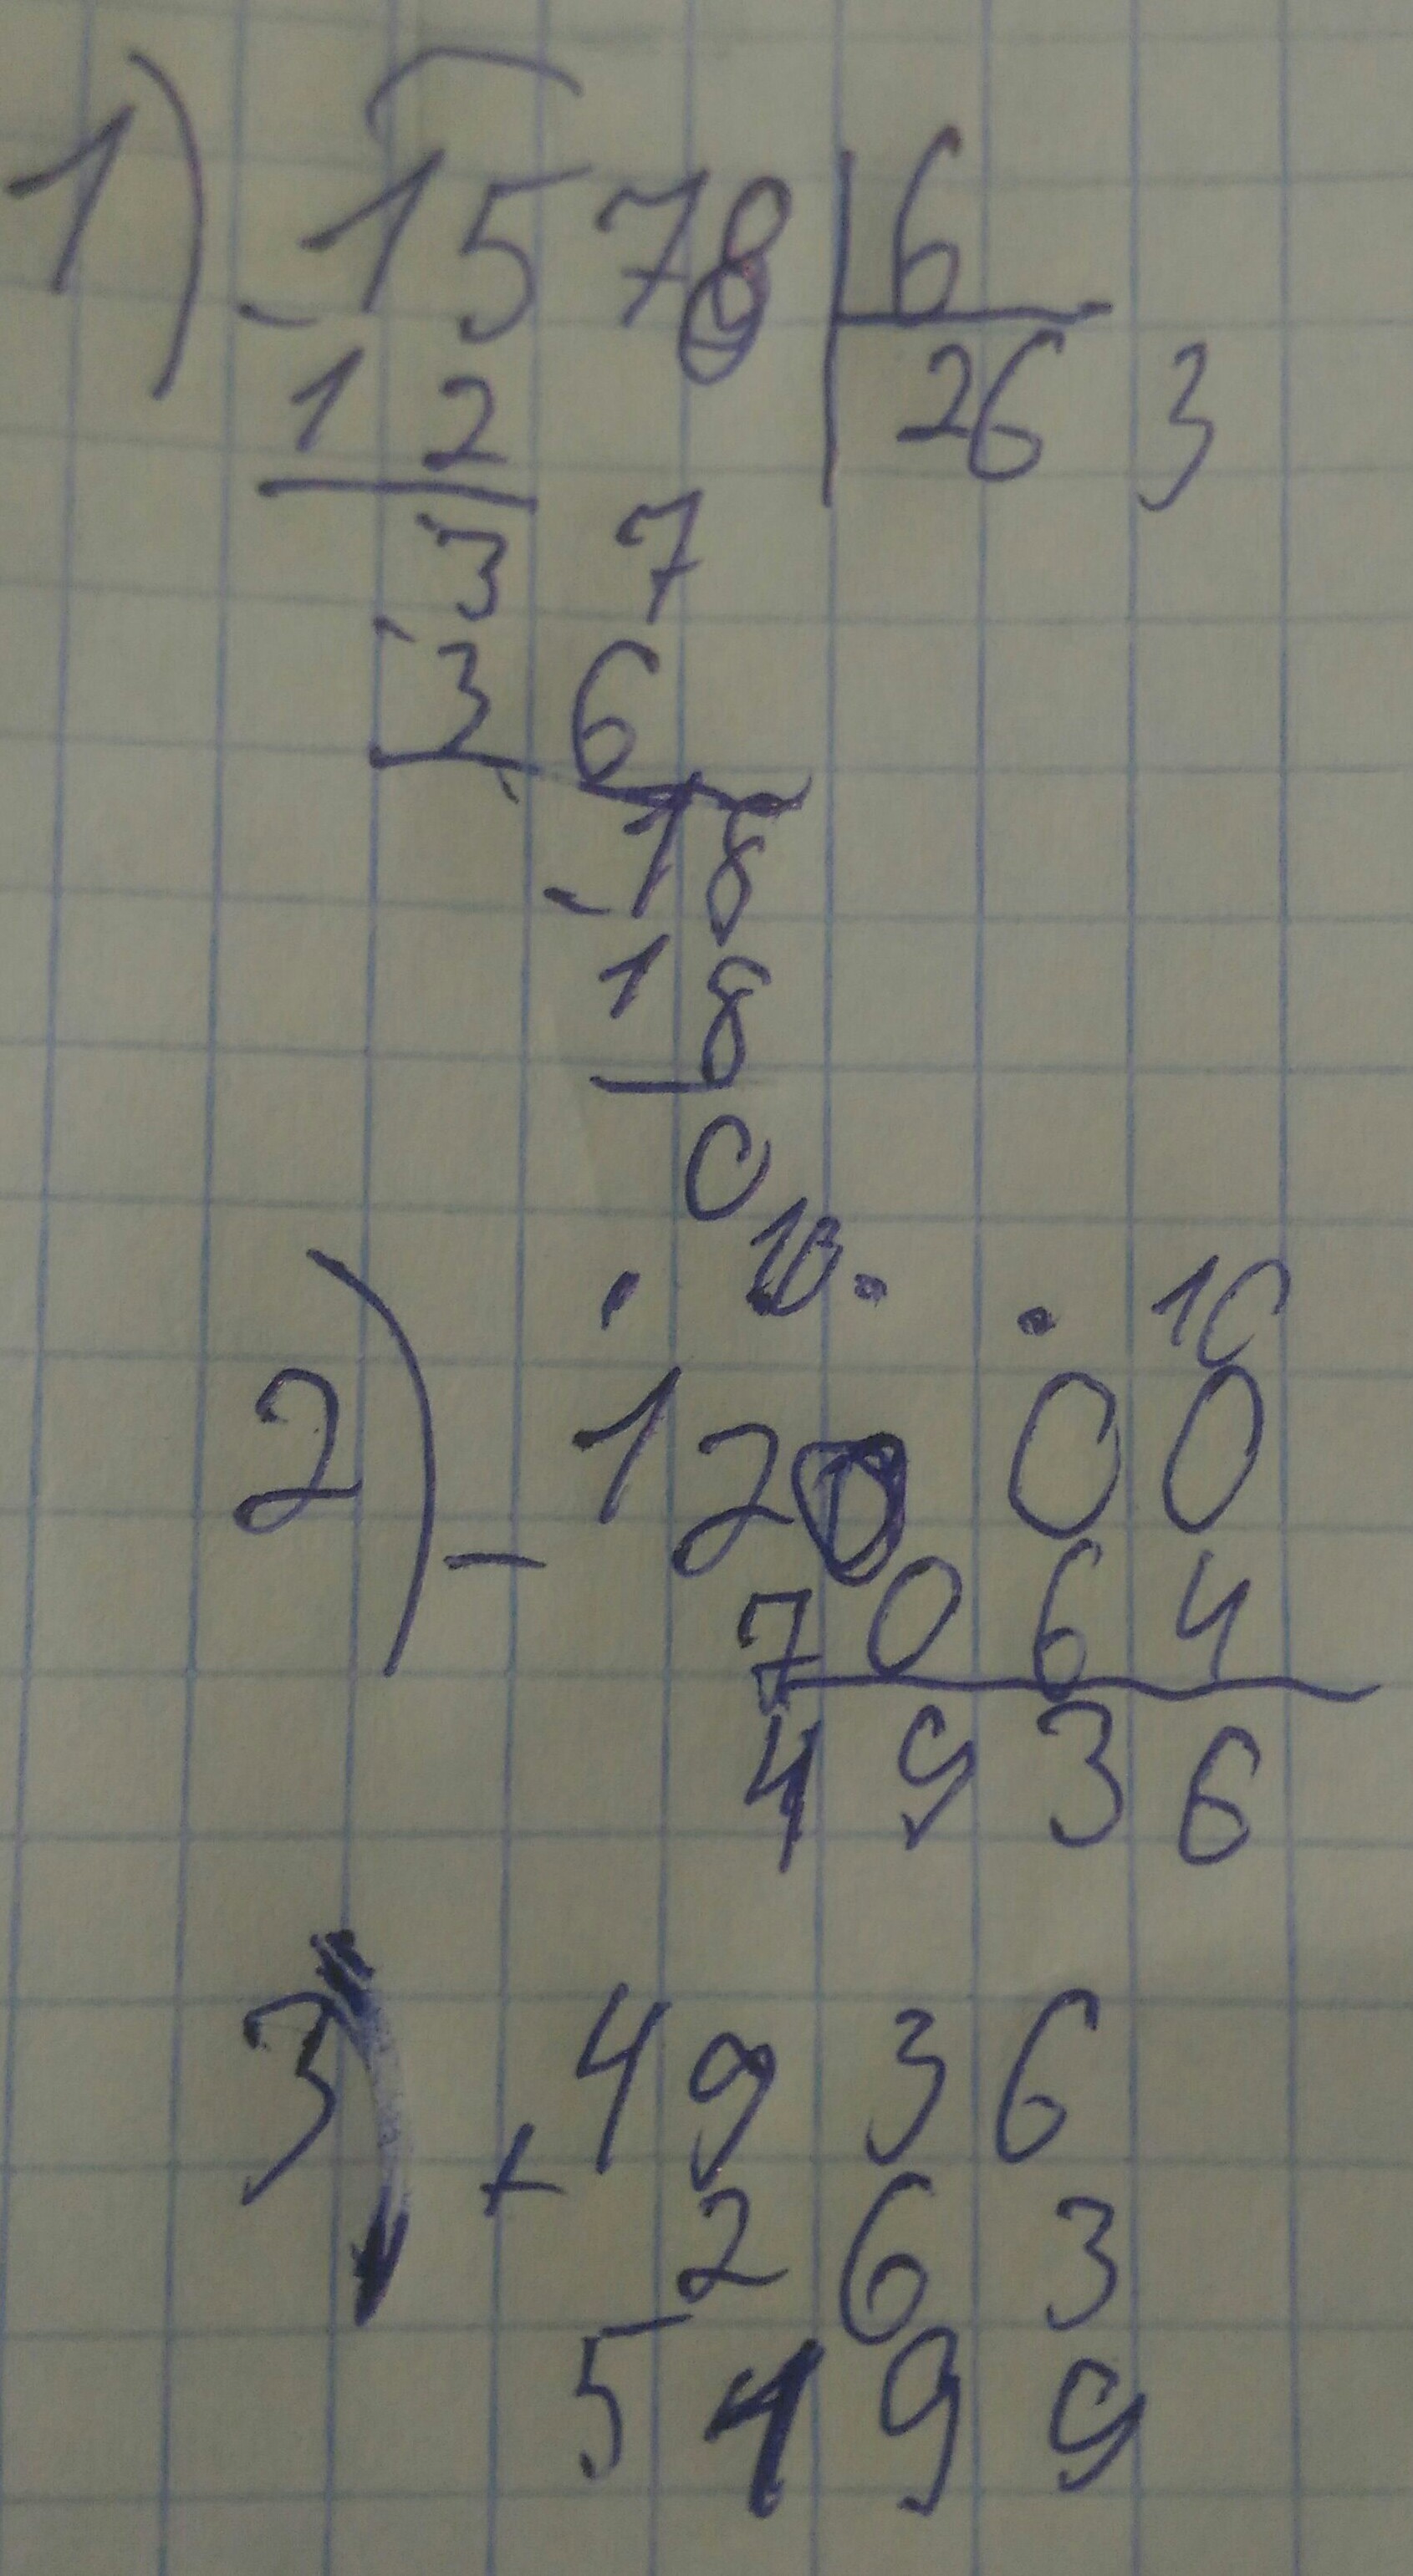 1) -1578 | 6
12 263
37
36
-18
18
0
10 10
2) -12000
7064
4936
3) +4936
263
5199